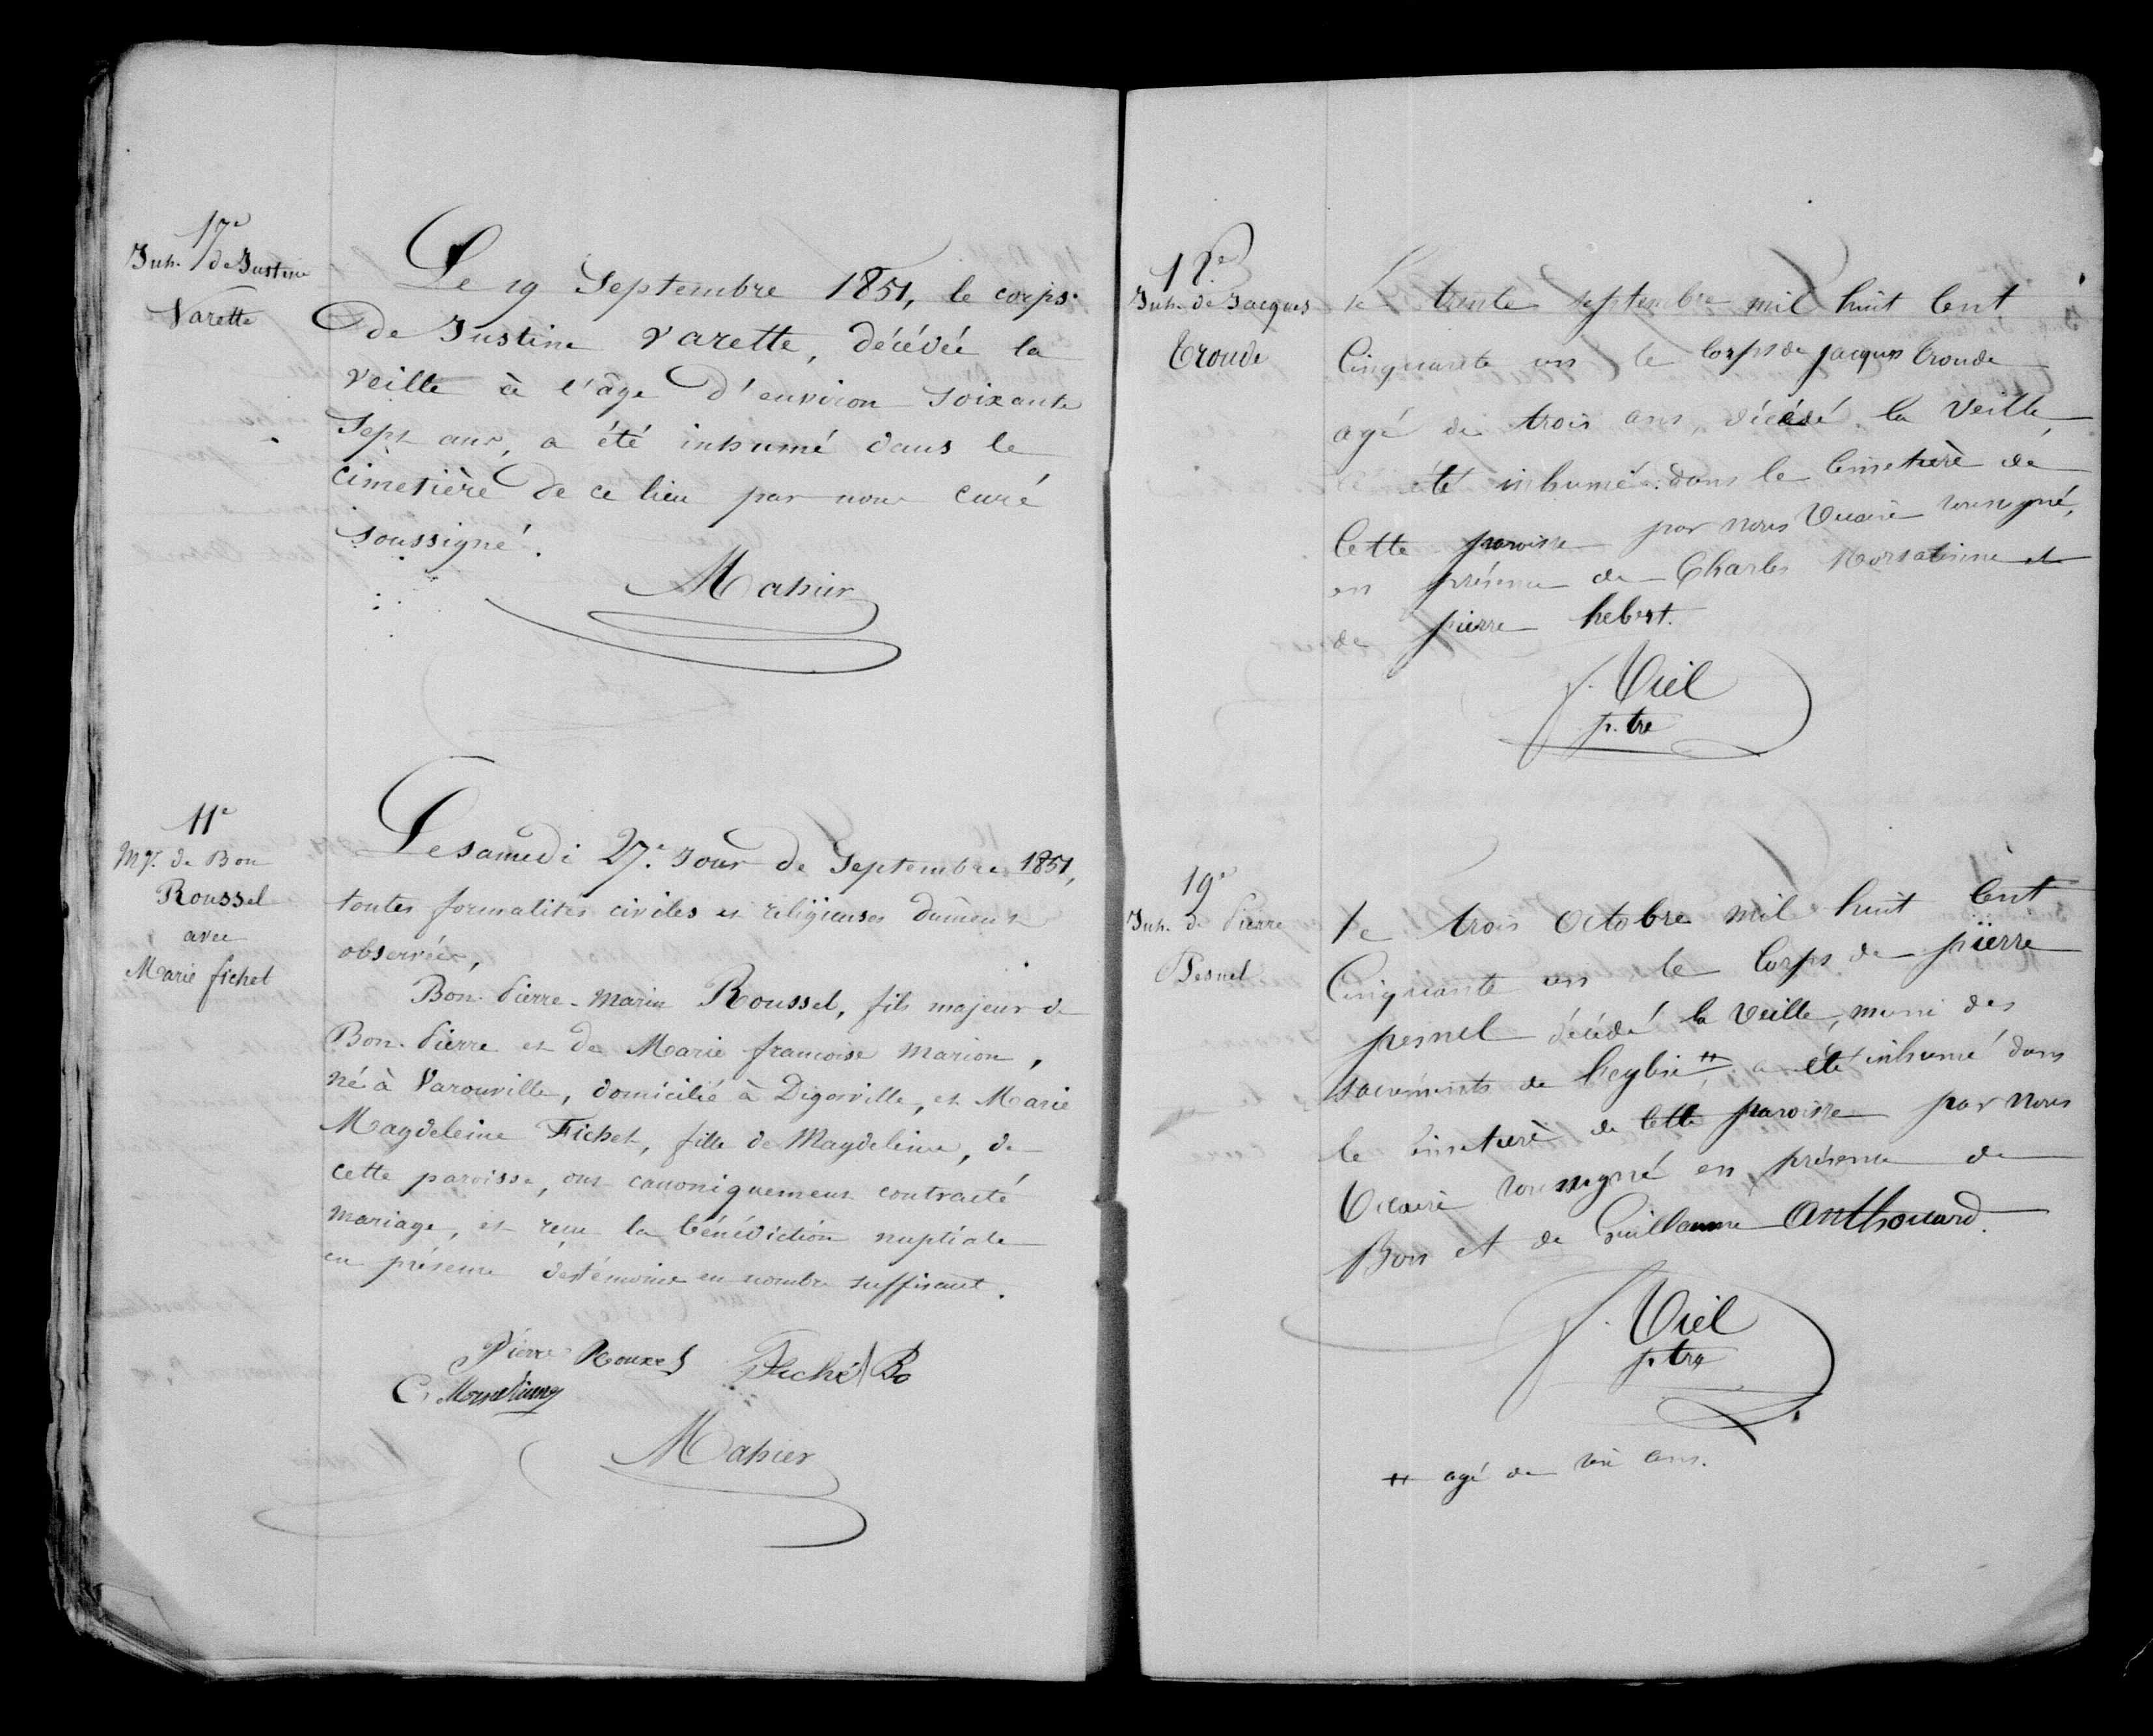 17e
Inh. de Justine
Varette
Le 19 Septembre 1851, le corps
de Justine Varette, décédée la
veille à l'âge d'environ soixante
sept ans, a été inhumé dans le
cimetière de ce lieu par nous curé
soussigné.
Mahier
11e
Mge. de Bon
Roussel
avec
Marie fichet
Le samedi 27e. Jour de Septembre 1851,
toutes formalités civiles et religieuses dûment
observées,
Bon-Pierre-Marin Roussel, fils majeur de
Bon-Pierre et de Marie francoise Marion,
né à Varouville, domicilié à Digosville, et Marie
Magdeleine Fichet, fille de Magdeleine, de
cette paroisse, ont canoniquement contracté
mariage, et reçu la bénédiction nuptiale
en présence des témoins en nombre suffisant.
Pierre Rouxel Fiché Bo
C. Morsalienne
Mahier
18e
Inh. de Jacques
Troude
le trente septembre mil huit Cent
Cinquante un le Corps de jacques troude
agé de trois ans, décédé la Veille,
a été inhumé dans le Cimetierè de
Cette paroisse par nous Vicaire soussigné,
en présence de Charles Morsalienne et
de pierre hebert.
f. Viel
p. tre
19e
Inh. de Pierre
Pesnel
le trois Octobre mil huit Cent
Cinquante un le Corps de pierre
pesnel décédé la Veille, muni des
sacrements de l'eglise # a été inhumé dans
le Cimetierè de Cette paroisse par nous
Vicaire soussigné en présence de
Bon et de Guillaume Anthouard.
f. Viel
p. tre
# agé de ans.